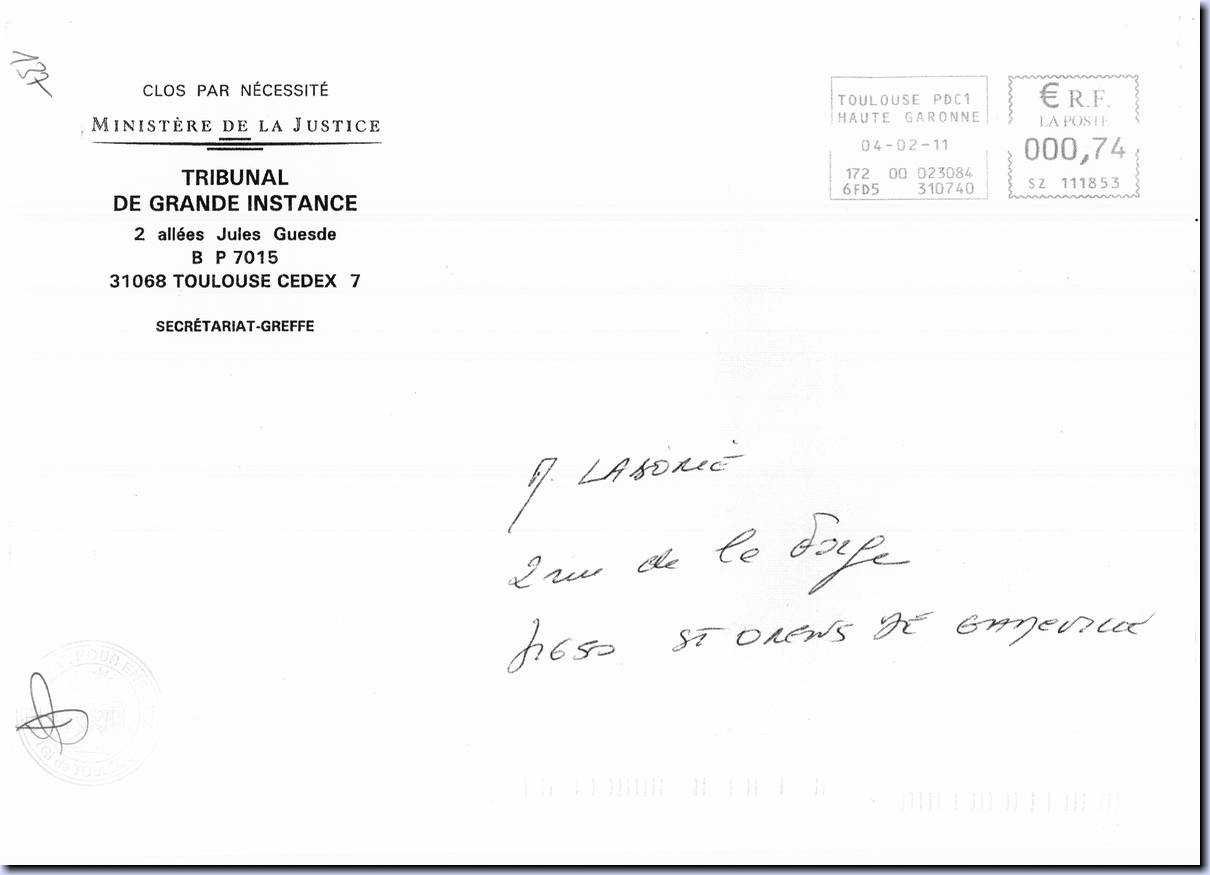 137
CLOS PAR NÉCESSITÉ
MINISTÈRE DE LA JUSTICE
TRIBUNAL
DE GRANDE INSTANCE
2 allées Jules Guesde
B P 7015
31068 TOULOUSE CEDEX 7
SECRÉTARIAT-GREFFE
TOULOUSE PDC1
HAUTE GARONNE
04-02-11
172 00 023084
6FD5 310740
€ R.F.
LA POSTE
000,74
SZ 111853
M. LABORIE
2 rue de la Forge
31650 ST ORENS DE GAMEVILLE
POUR